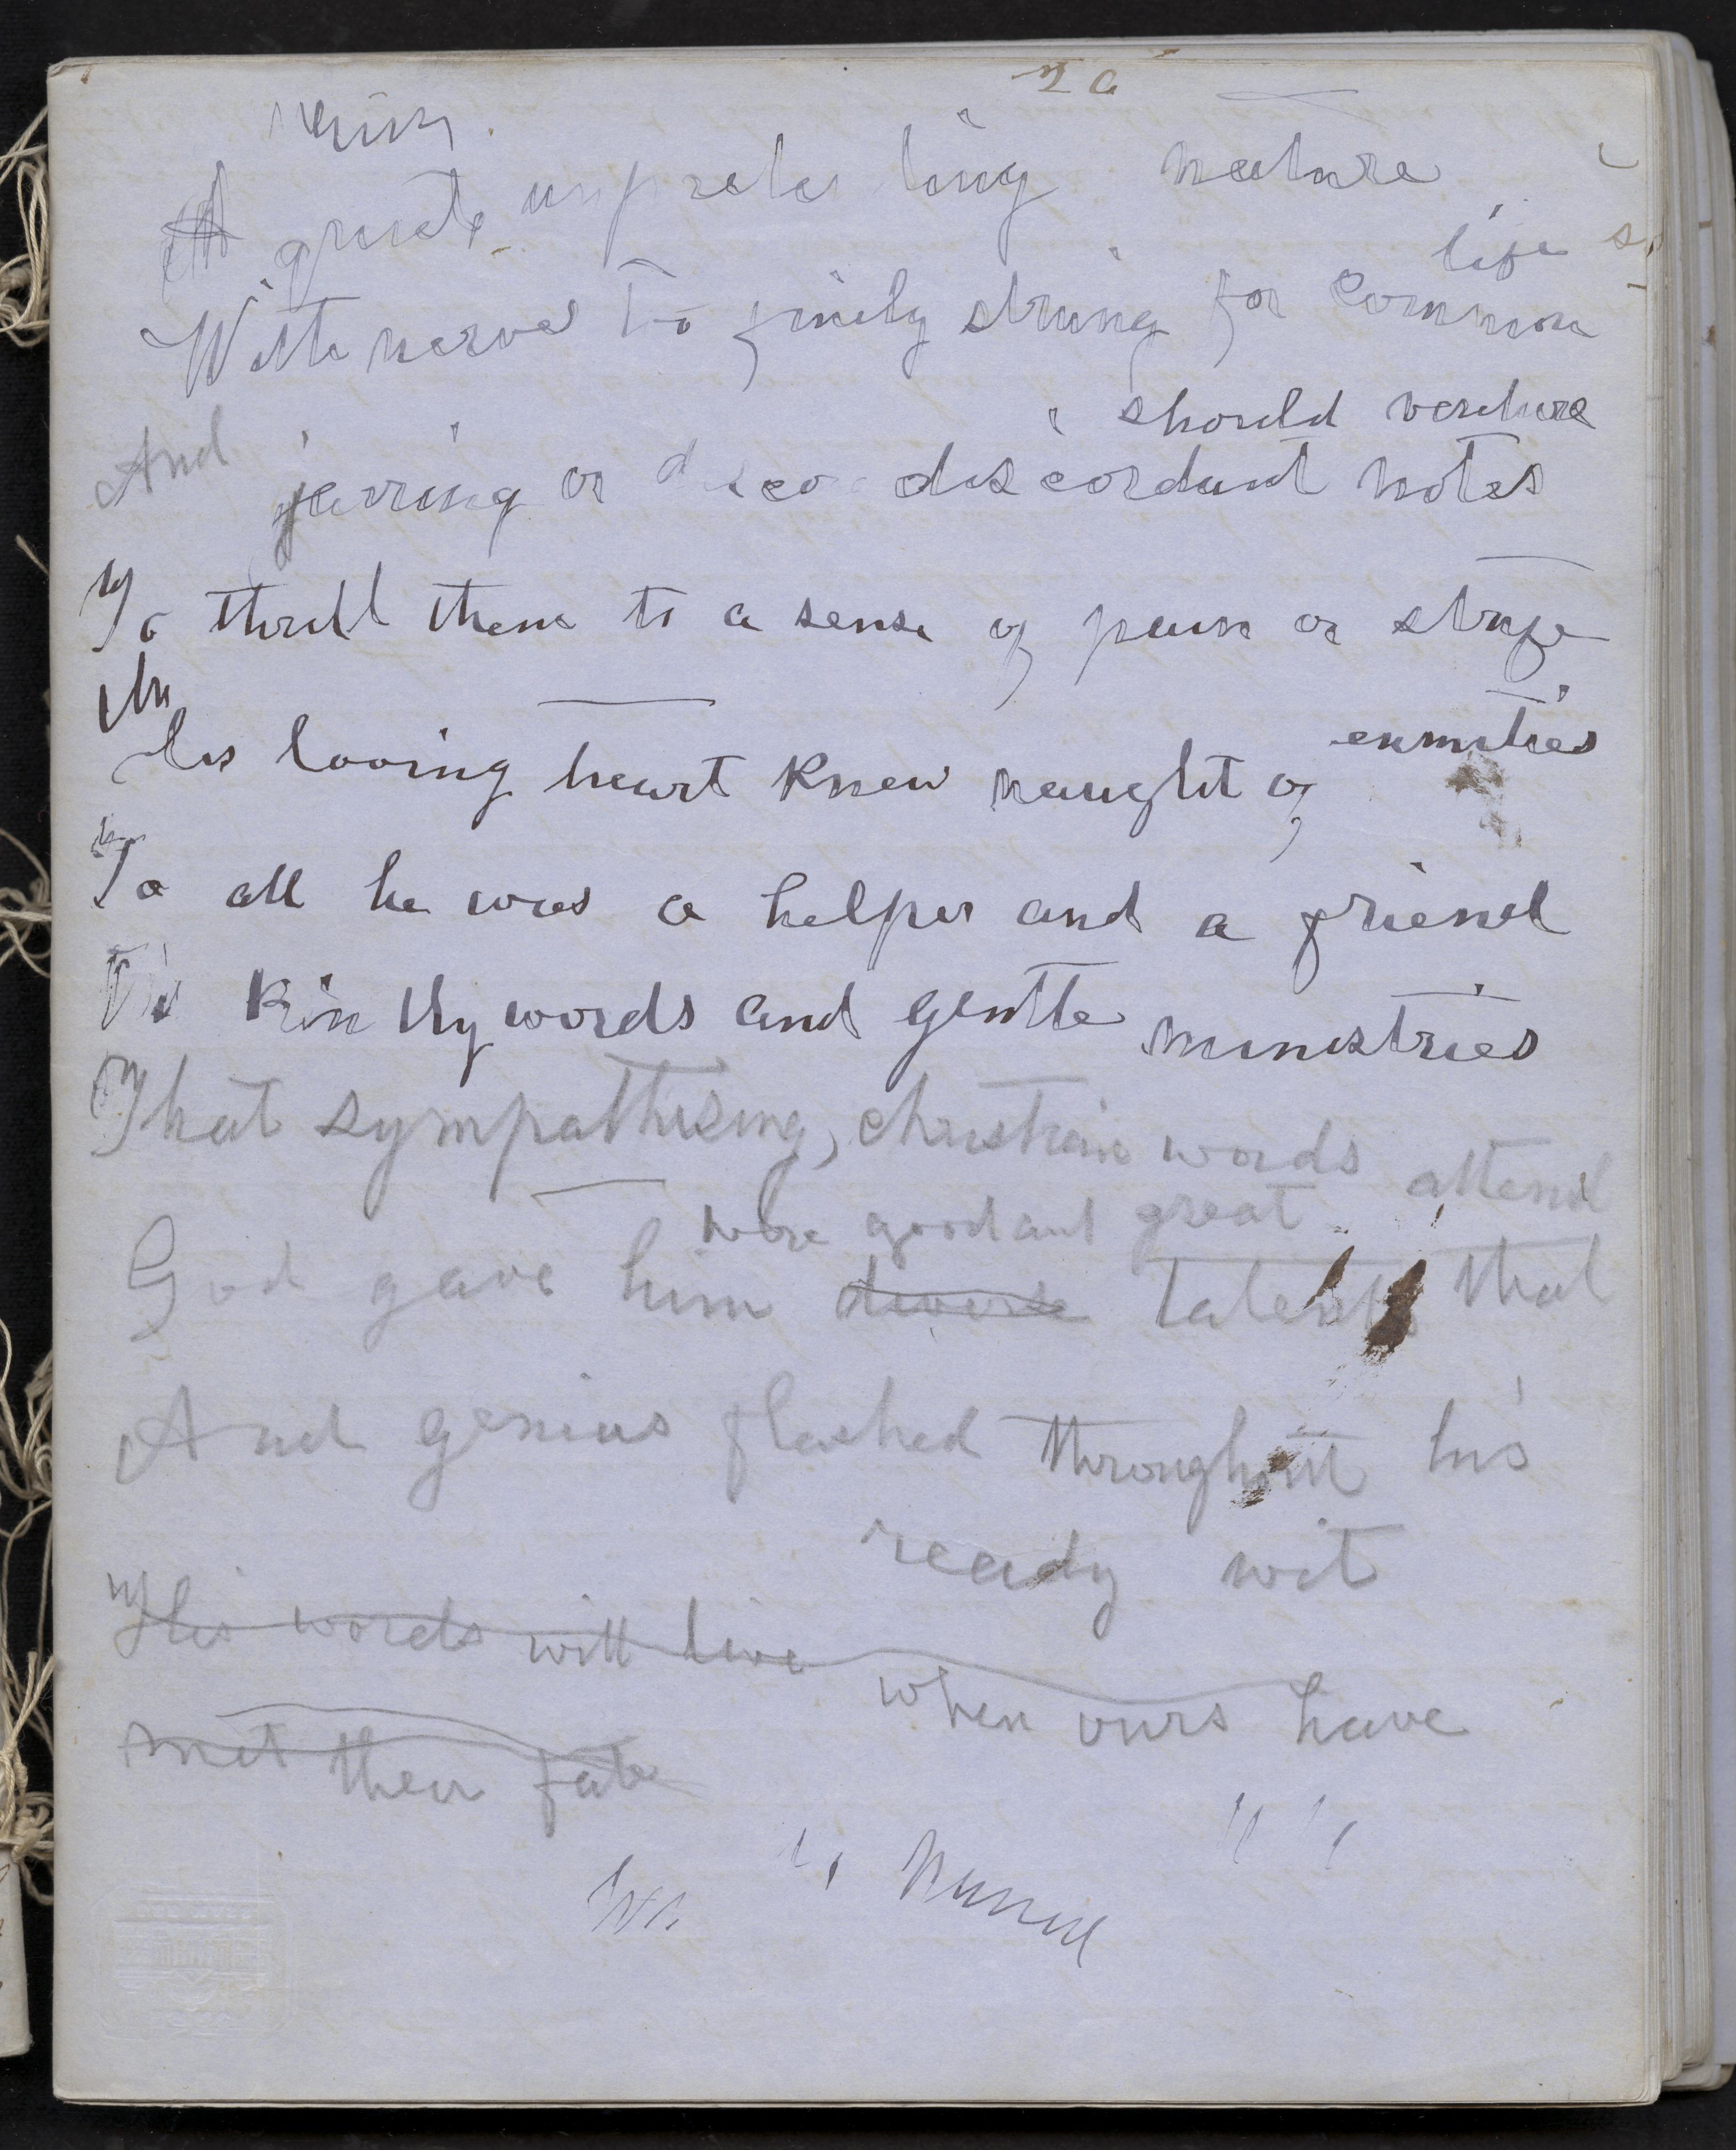 A quiet unpretending nature
life
With nerves to finely strung for common
should venture
And jarring or disco discordant notes
To thrill them to a sense of pain or strife
His loving heart knew naught of enmities
To all he was a helper and a friend
kindly words and gentle ministries
That sympathising, christian words attend
were good and great
God gave him diverse talents that
And genius flashed throughout his
ready wit
His words will live when ours have
met their fate